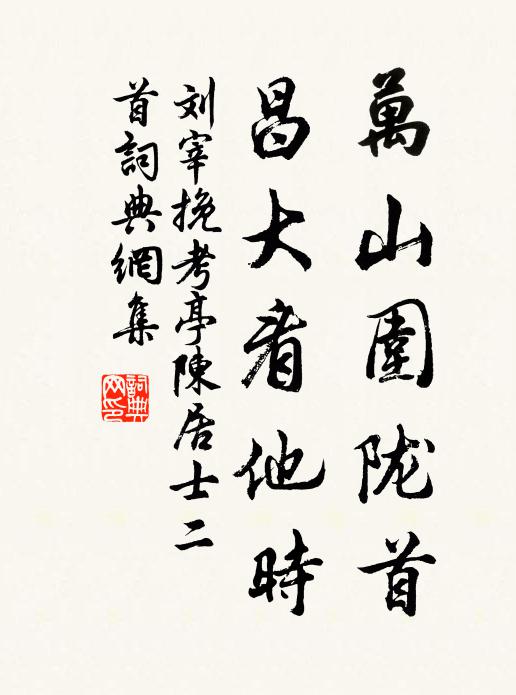 萬山圍陇首
昌大看他時
刘宰挽考亭陳居士二
首詞典網集
詞典網印